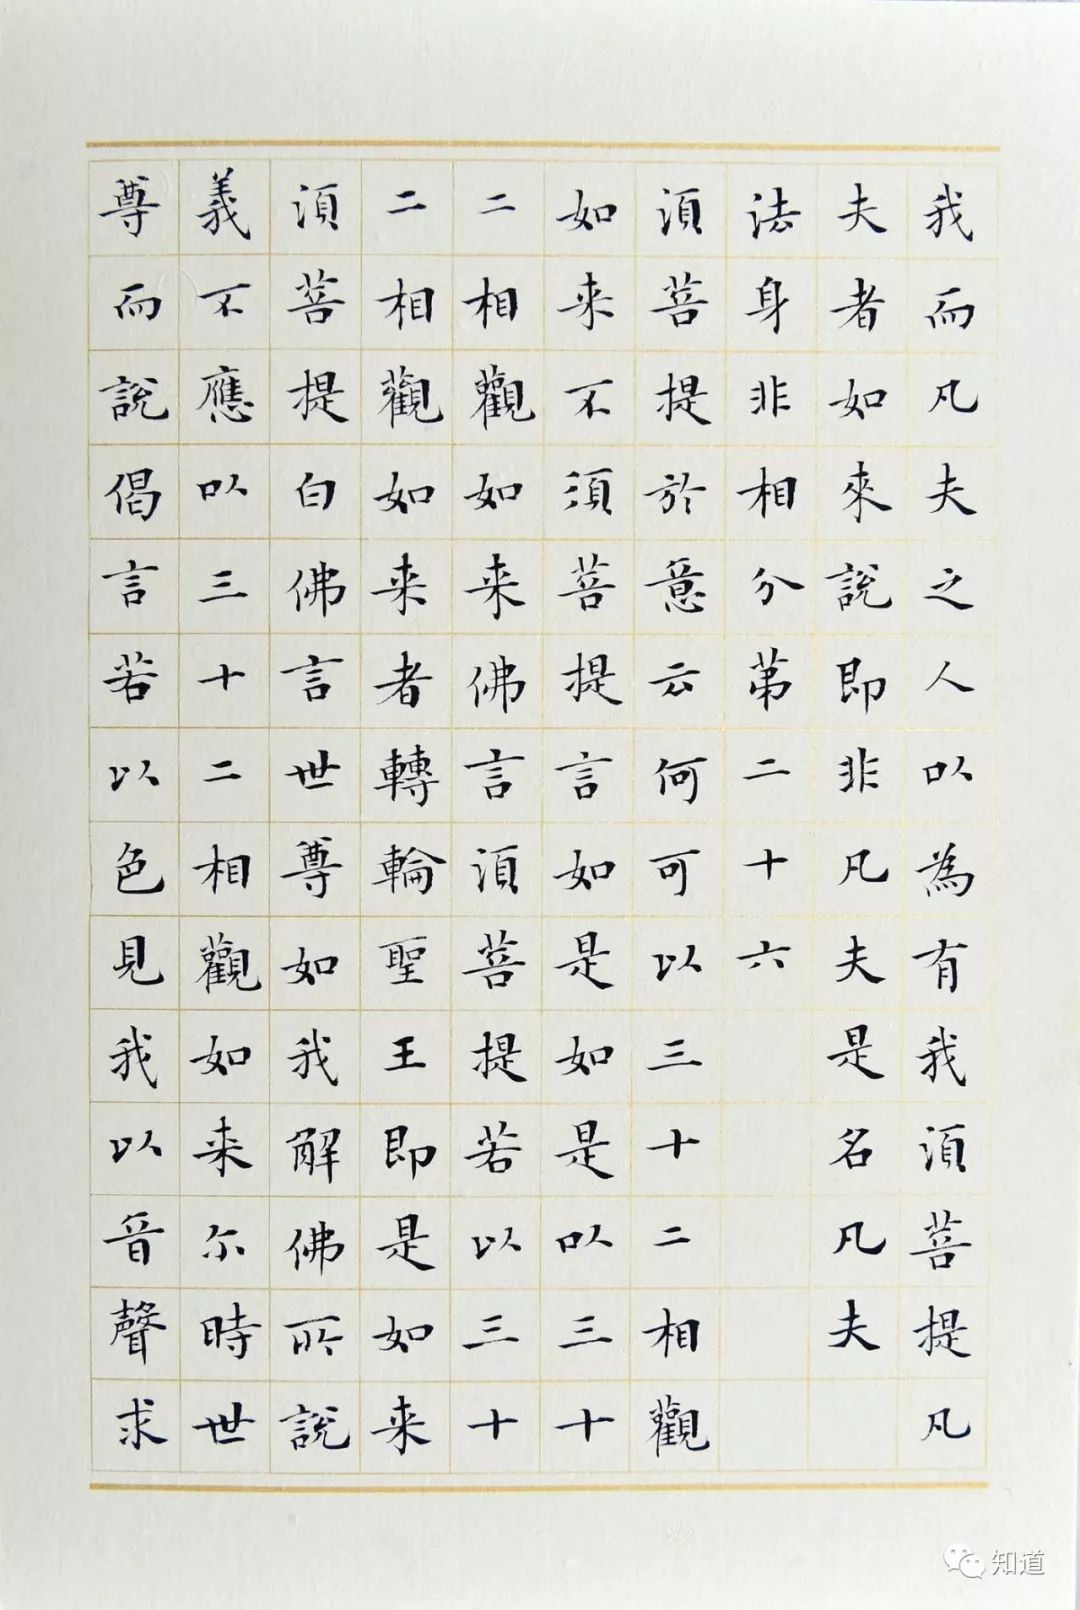 我而凡夫之人以為有我須菩提凡
夫者如來說即非凡夫是名凡夫
法身非相分第二十六
須菩提於意云何可以三十二相觀
如来不須菩提言如是如是以三十
二相觀如来佛言須菩提若以三十
二相觀如来者轉輪聖王即是如来
須菩提白佛言世尊如我解佛所說
義不應以三十二相觀如来尔時世
尊而說偈言若以色見我以音聲求
知道